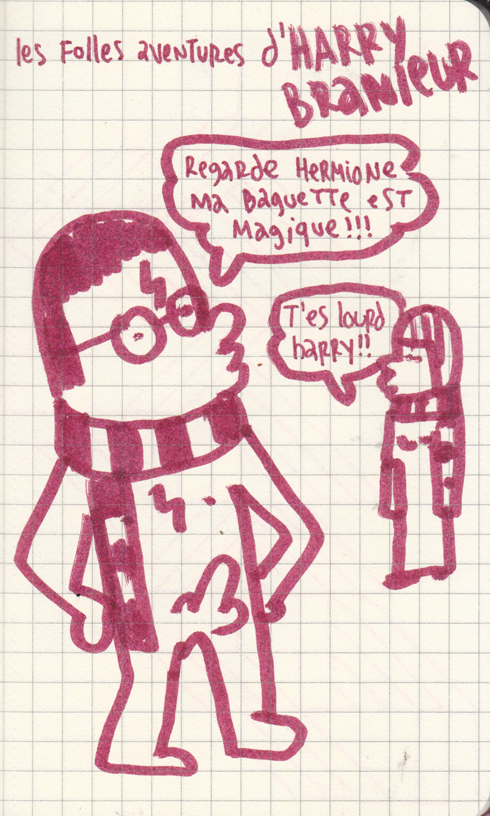 les Folles aventures d'HARRY
BRANleuR
Regarde HerMioNe
Ma BaguETTe esT
Magique!!!
T'es lourd
harry!!